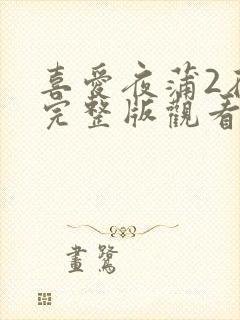 喜愛夜蒲2在
完整版觀看
畫鷺